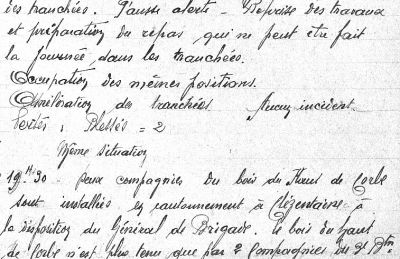 les tranchées. Fausse alerte - Reprise des travaux
et préparation du repas, qui ne peut être fait
la journée dans les tranchées.
Occupation des mêmes positions.
Amélioration des tranchées Aucun incident.
Pertes : Blessés = 2
Même situation
19H30 - Deux compagnies du bois du Haut de
sont installées en cantonnement à à
la disposition du Général de Brigade. Le bois du haut
de n'est plus tenu que par 2 Compagnies du 2e Btn